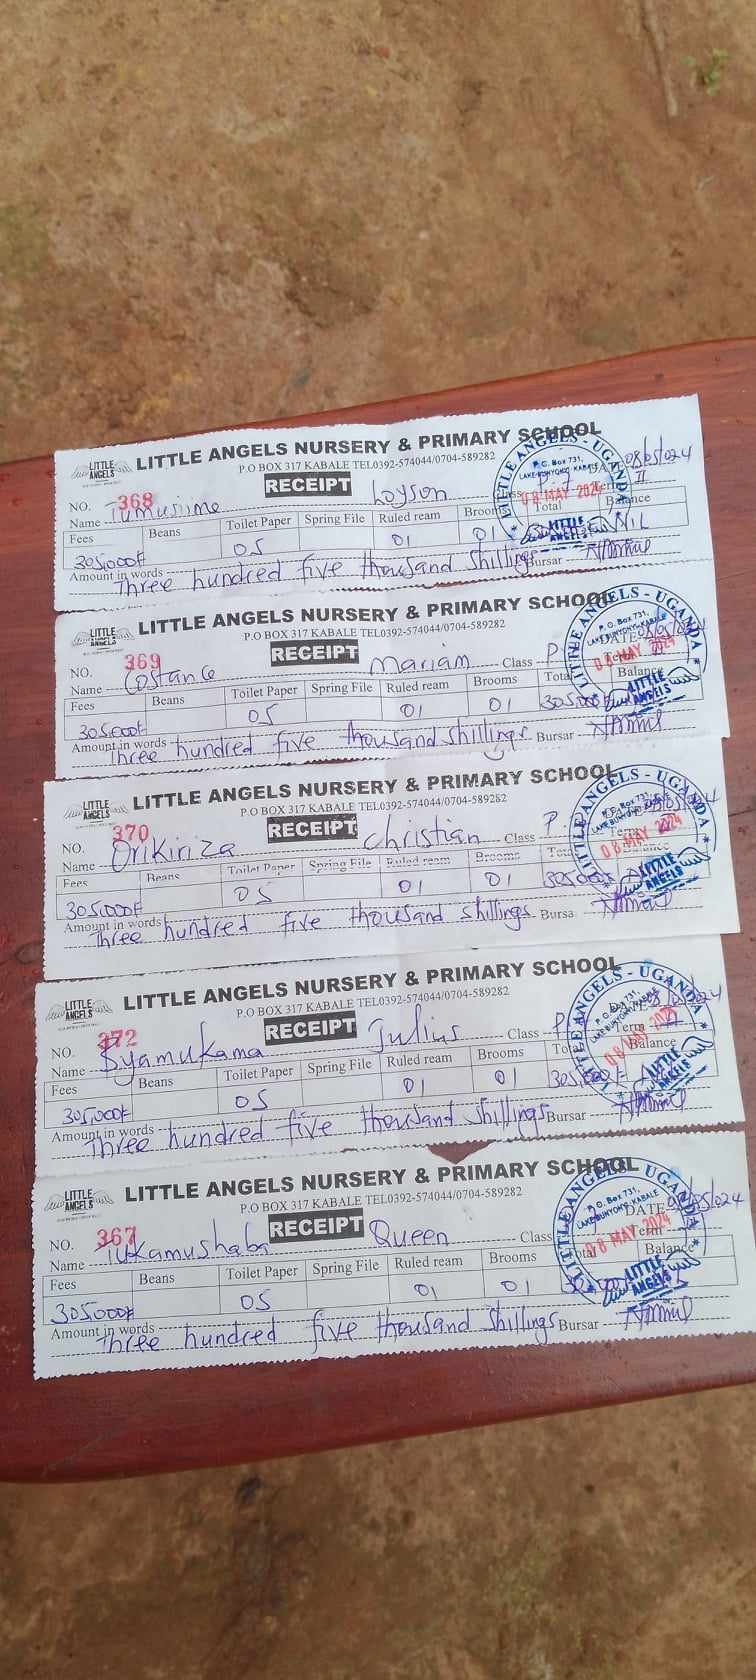 LITTLE ANGELS
LITTLE ANGELS NURSERY & PRIMARY SCHOOL
P.O BOX 317 KABALE TEL.0392-574044/0704-589282
RECEIPT
NO. 368 DATE 08/05/024
Name Tumusiime Loyson Class 7 Term II
Fees Beans Toilet Paper Spring File Ruled ream Brooms Total Balance
305,000/= 05 01 01 NIL
Amount in words Three hundred five thousand shillings Bursar
LITTLE ANGELS - UGANDA
P.O. Box 731,
LAKE BUNYONYI, KABALE
08 MAY 2024
LITTLE ANGELS
LITTLE ANGELS
LITTLE ANGELS NURSERY & PRIMARY SCHOOL
P.O BOX 317 KABALE TEL.0392-574044/0704-589282
RECEIPT
NO. 369 DATE
Name Costance Mariam Class P. Term
Fees Beans Toilet Paper Spring File Ruled ream Brooms Total Balance
305,000/= 05 01 01 305,000/=
Amount in words Three hundred five thousand shillings Bursar
LITTLE ANGELS - UGANDA
P.O. Box 731,
LAKE BUNYONYI, KABALE
08 MAY 2024
LITTLE ANGELS
LITTLE ANGELS
LITTLE ANGELS NURSERY & PRIMARY SCHOOL
P.O BOX 317 KABALE TEL.0392-574044/0704-589282
RECEIPT
NO. 370
Name Orikiriza Christian Class P. Term
Fees Beans Toilet Paper Spring File Ruled ream Brooms Total
305,000/= 05 01 01 305,000/=
Amount in words Three hundred five thousand shillings Bursar
LITTLE ANGELS - UGANDA
P.O. Box 731,
LAKE BUNYONYI, KABALE
08 MAY 2024
LITTLE ANGELS
LITTLE ANGELS
LITTLE ANGELS NURSERY & PRIMARY SCHOOL
P.O BOX 317 KABALE TEL.0392-574044/0704-589282
RECEIPT
NO. 372 DATE
Name Byamukama Julius Class P Term
Fees Beans Toilet Paper Spring File Ruled ream Brooms Total Balance
305,000/= 05 01 01 305,000/=
Amount in words Three hundred five thousand shillings Bursar
LITTLE ANGELS - UGANDA
P.O. Box 731,
LAKE BUNYONYI, KABALE
08 MAY 2024
LITTLE ANGELS
LITTLE ANGELS
LITTLE ANGELS NURSERY & PRIMARY SCHOOL
P.O BOX 317 KABALE TEL.0392-574044/0704-589282
RECEIPT
NO. 367 DATE 08/05/024
Name Tukamushaba Queen Class Term
Fees Beans Toilet Paper Spring File Ruled ream Brooms Total Balance
305,000/= 05 01 01
Amount in words Three hundred five thousand shillings Bursar
LITTLE ANGELS - UGANDA
P.O. Box 731,
LAKE BUNYONYI, KABALE
08 MAY 2024
LITTLE ANGELS